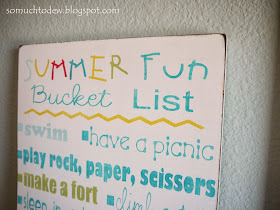 somuchtodew.blogspot.com
SUMMER FUN
Bucket List
swim have a picnic
play rock, paper, scissors
make a fort climb
sleep in